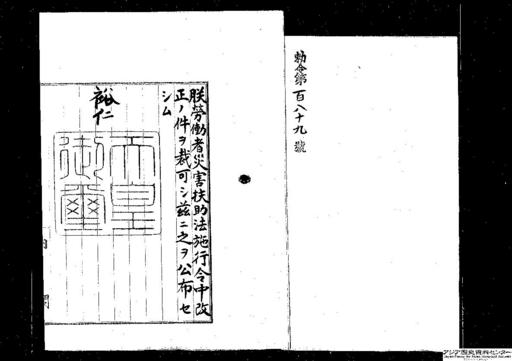 勅令第百八十九號
朕勞働者災害扶助法施行令中改
正ノ件ヲ裁可シ茲ニ之ヲ公布セ
シム
裕仁
天皇
御璽
アジア歴史資料センター